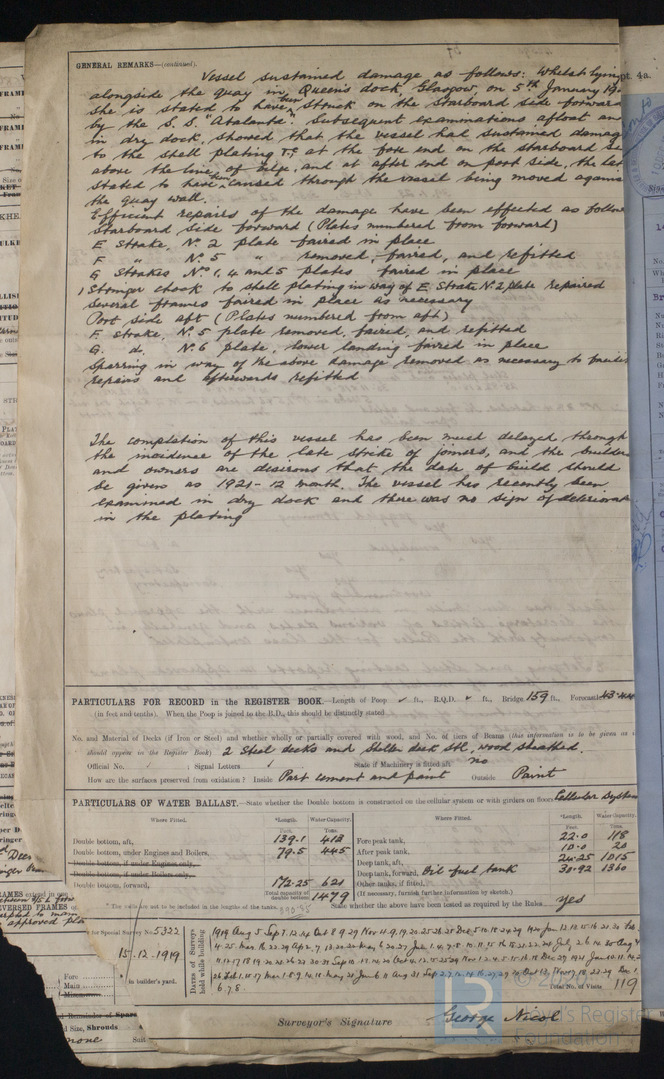 GENERAL REMARKS—(continued).
Vessel sustained damage as follows: Whilst lying
alongside the quay in Queen's dock, Glasgow, on 5th January 19
she is stated to have been struck on the starboard side forward
by the S.S. "Atalanta". Subsequent examinations afloat and
in dry dock, showed that the vessel had sustained damage
to the shell plating &c at the fore end on the starboard si
above the line of bilge, and at after end on port side, the lat
stated to have been caused through the vessel being moved agains
the quay wall.
Efficient repairs of the damage have been effected as follow
Starboard side forward (Plates numbered from forward)
E Strake, No. 2 plate faired in place
F " No. 5 " removed, faired, and refitted
G Strakes No. 1, 4 and 5 plates faired in place
1 Stringer chock to shell plating in way of E. Strake No. 2 plate repaired
Several frames faired in place as necessary
Port side aft (Plates numbered from aft)
F. Strake, No. 5 plate removed, faired, and refitted
G. do. No. 6 plate, lower landing faired in place
Sparring in way of the above damage removed as necessary to
repairs and afterwards refitted
The completion of this vessel has been much delayed through
the incidence of the late strike of joiners, and the builders
and owners are desirous that the date of build should
be given as 1921-12 month. The vessel has recently been
examined in dry dock and there was no sign of deteriorat
in the plating
PARTICULARS FOR RECORD in the REGISTER BOOK.—Length of Poop ✓ ft., R.Q.D. ✓ ft., Bridge 159 ft., Forecastle 43
(in feet and tenths). When the Poop is joined to the B.D., this should be distinctly stated
No. and Material of Decks (if Iron or Steel) and whether wholly or partially covered with wood, and No. of tiers of Beams (this information is to be given as it
should appear in the Register Book) 2 Steel decks and Shelter deck Stl, wood sheathed.
Official No. ; Signal Letters State if Machinery is fitted aft no
How are the surfaces preserved from oxidation? Inside Part cement and paint Outside Paint
PARTICULARS OF WATER BALLAST.—State whether the Double bottom is constructed on the cellular system or with girders on floors Cellular System
Where Fitted. *Length. Water Capacity. Where Fitted. *Length. Water Capacity.
Feet. Tons. Feet. Tons.
Double bottom, aft, 139.1 413 Fore peak tank, 22.0 118
Double bottom, under Engines and Boilers, 79.5 445 After peak tank, 10.0 20
Double bottom, if under Engines only, Deep tank, aft, 24.25 1015
Double bottom, if under Boilers only, Deep tank, forward, Oil fuel tank 30.92 1360
Double bottom, forward, 172.25 621 Other tanks, if fitted,
Total capacity of double bottom 1479 (If necessary, furnish further information by sketch.)
* The wells are not to be included in the lengths of the tanks. State whether the above have been tested as required by the Rules yes
for Special Survey No. 5322
15.12.1919
in builder's yard.
Dates of Surveys held while building
Total No. of Visits 119
Surveyor's Signature George Nicol
LR
Lloyd's Register
Foundation